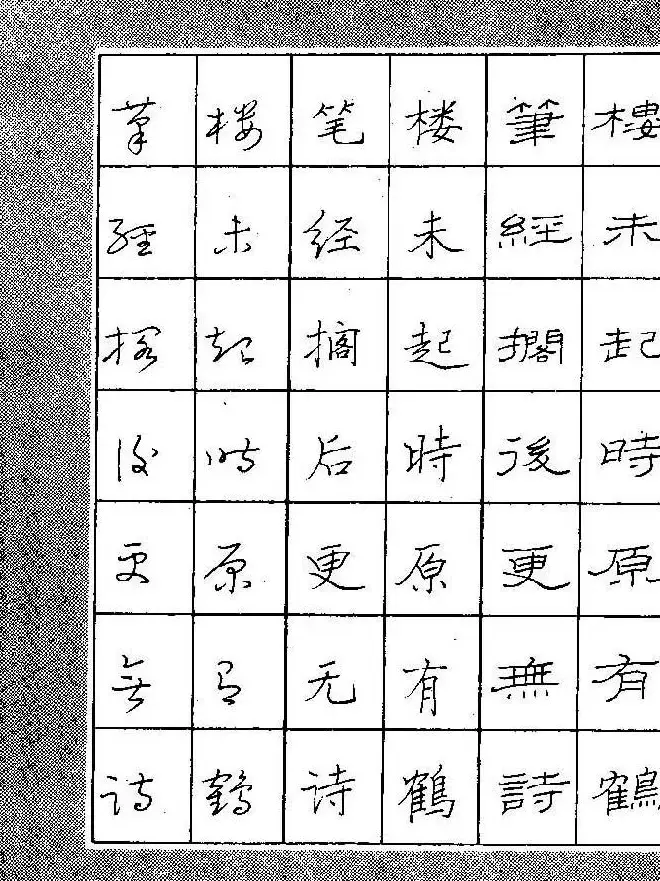 樓未起時原有鶴
筆經擱後更無詩
楼未起時原有鶴
笔经搁后更无诗
楼未起时原有鶴
筆經搁後更無诗